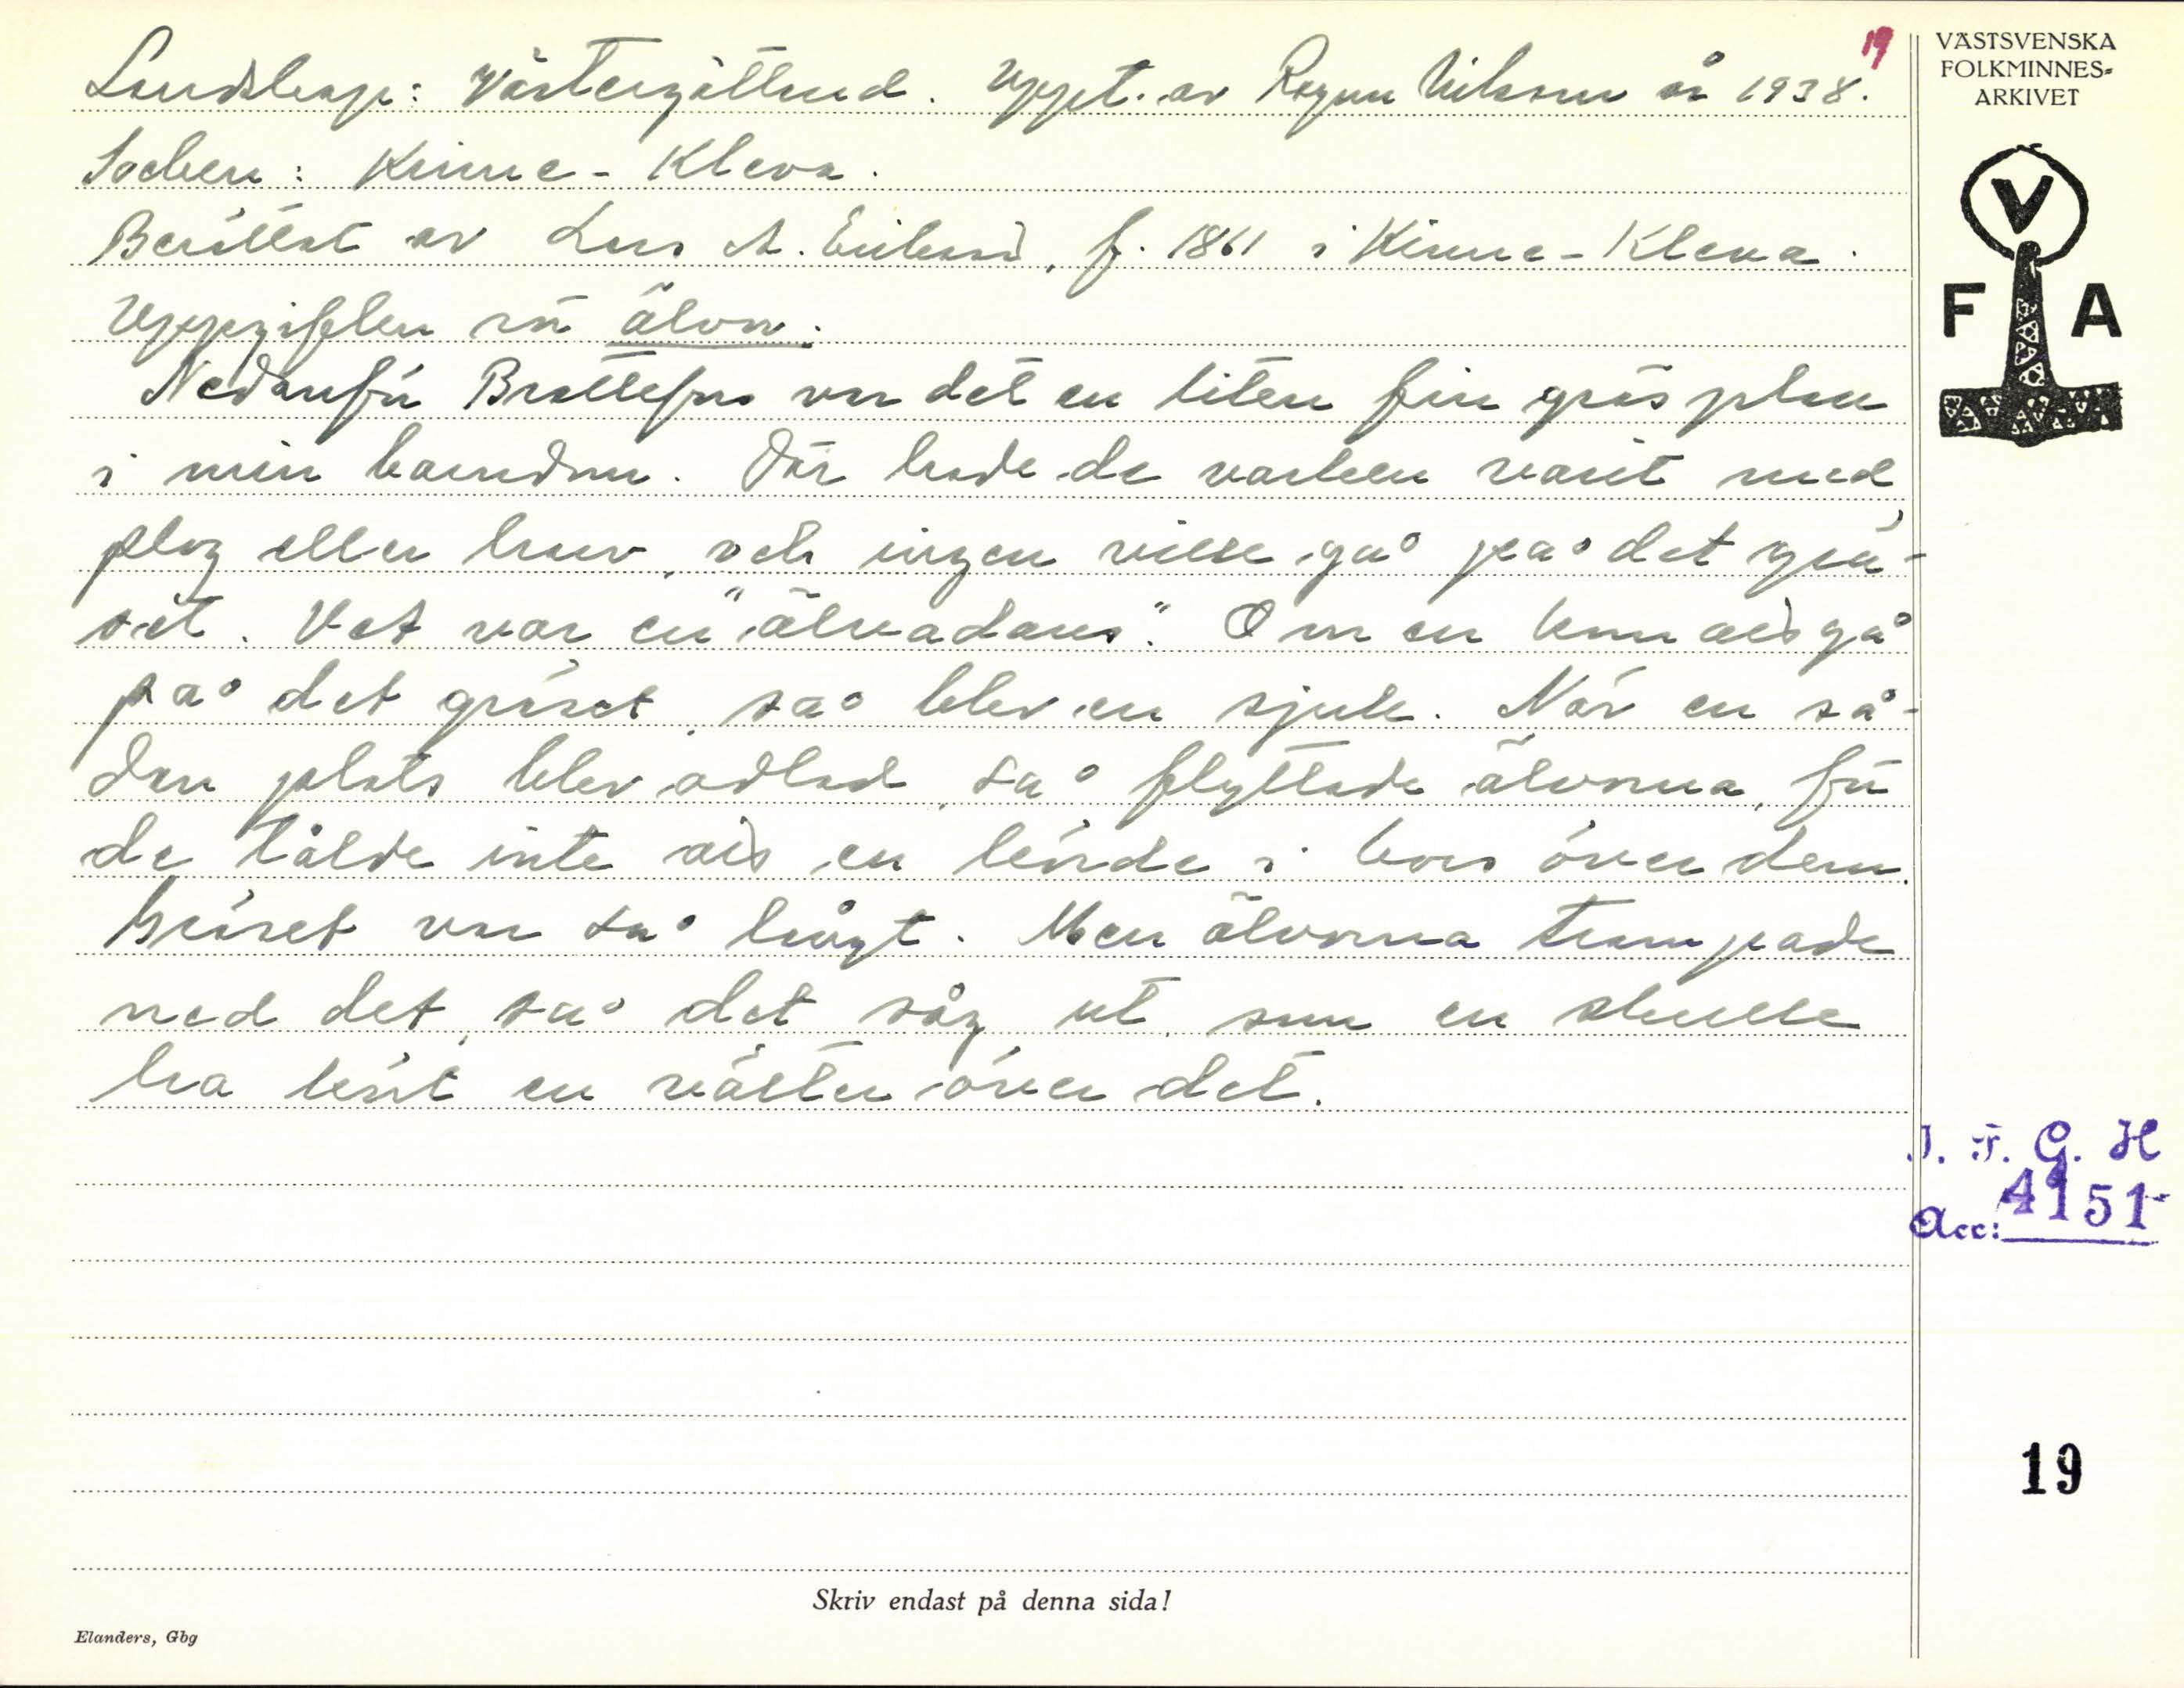 Landskap: Västergötland. Uppt. av Ragnar Nilsson år 1938.
19
Socken: Kinne-Kleva.
Berättat av Lars A. Eriksson, f. 1861 i Kinne-Kleva.
Uppgiften rör älvor.
Nedanför Brattefors var det en liten fin gräsplan
i min barndom. Där hade de varken varit med
plog eller harv, och ingen ville gå på det grä-
set. Det var en "älvadans". Om en kom att gå
på det gräset, så blev en sjuk. När en så-
dan plats blev odlad, så flyttade älvorna, för
de tålde inte att en körde i kors över dem.
Gräset var så långt. Men älvorna trampade
ned det, så det såg ut, som en skulle
ha kört en vält över det.
VÄSTSVENSKA
FOLKMINNES-
ARKIVET
V
F A
I. F. G. H
Acc: 4151
19
Skriv endast på denna sida!
Elanders, Gbg